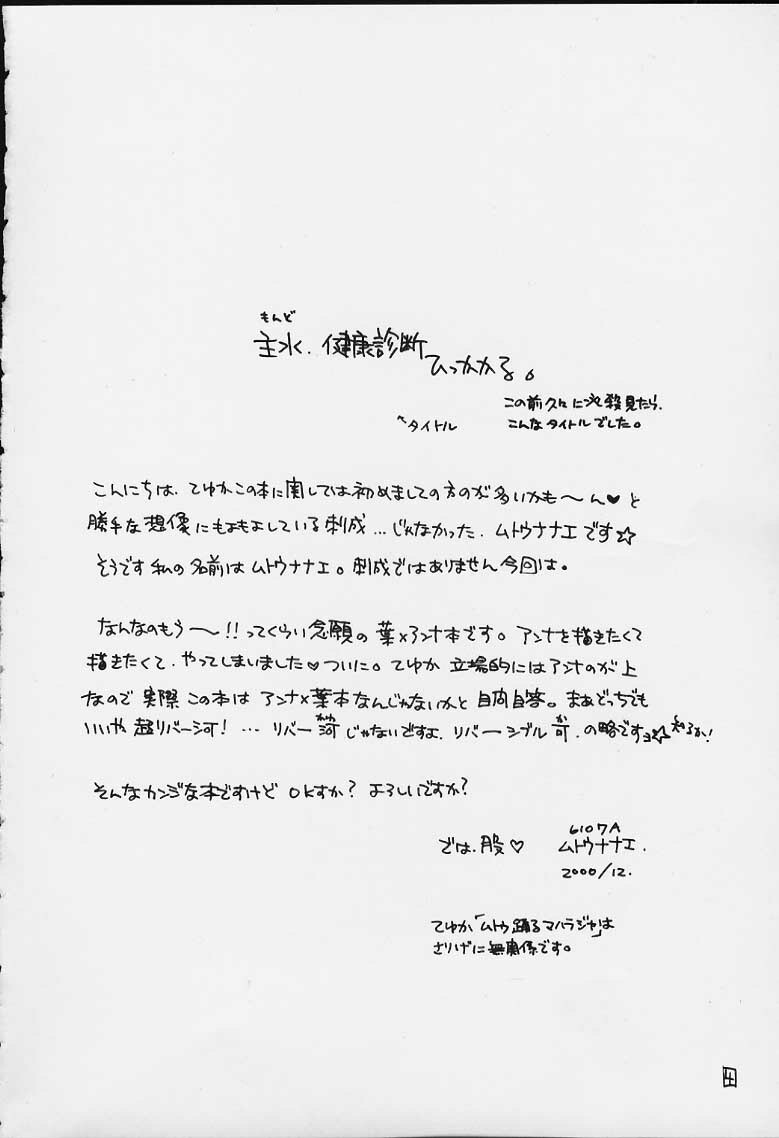 もんど
主水、健康診断
ひっかかる。
この前久々に必殺見たら、
こんなタイトルでした。
↖タイトル
こんにちは、てゆかこの本に関しては初めましての方のが多いかも〜ん♥と
勝手な想像にもよもよしている刺成…じゃなかった、ムトウナナエです☆
そうです私の名前はムトウナナエ。刺成ではありません今回は。
なんなのもう〜!!ってくらい念願の葉×アンナ本です。アンナを描きたくて
描きたくて、やってしまいました♥ついに。てゆか 立場的にはアンナのが上
なので 実際この本は アンナ×葉本なんじゃないかと自問自答。まあどっちでも
いいや 超リバー河!…リバー河じゃないですよ、リバーシブル可、の略ですョ☆知るか!
かわ
か
そんなカンジな本ですけど OKすか? よろしいですか?
では、股♡
6107A
ムトウナナエ.
2000/12.
てゆか「ムトウ踊るマハラジャ」は
さりげに無関係です。
4